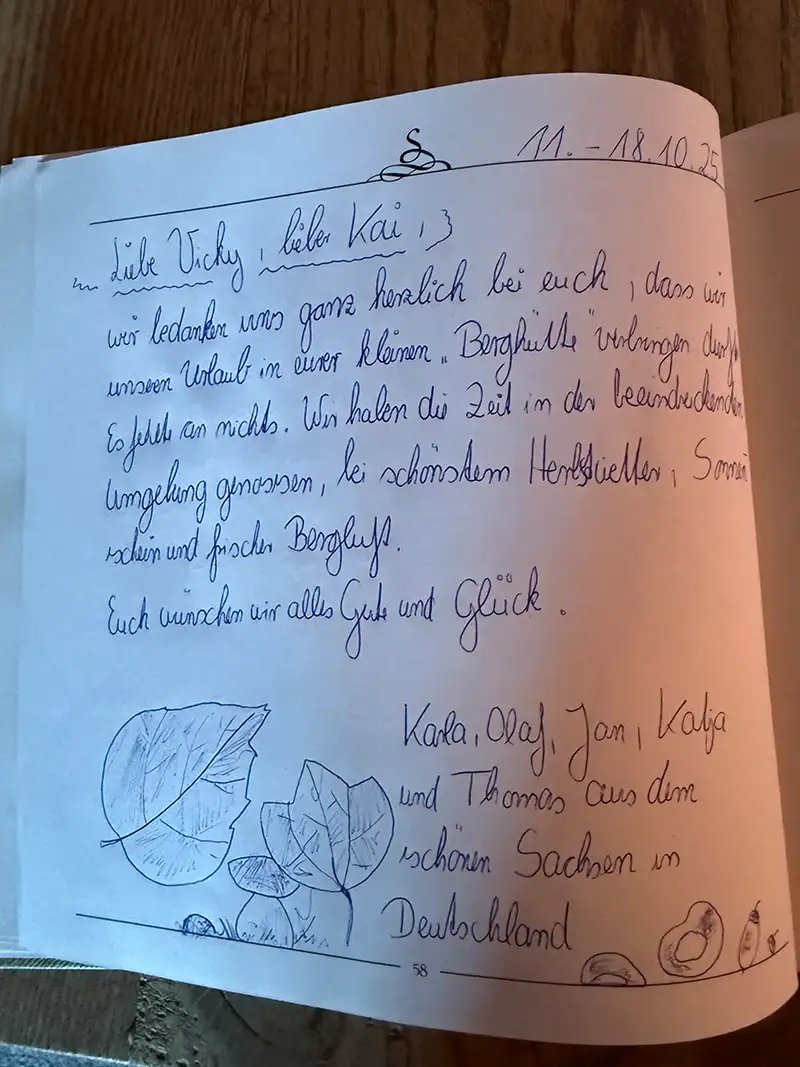 11. - 18.10.25
Liebe Vicky, lieber Kai,
wir bedanken uns ganz herzlich bei euch, dass wir
unseren Urlaub in eurer kleinen „Berghütte" verbringen durft
Es fehlte an nichts. Wir haben die Zeit in der beeindruckenden
Umgebung genossen, bei schönstem Herbstwetter, Sonnen
schein und frischer Bergluft.
Euch wünschen wir alles Gute und Glück.
Karla, Olaf, Jan, Katja
und Thomas aus dem
schönen Sachsen in
Deutschland
58